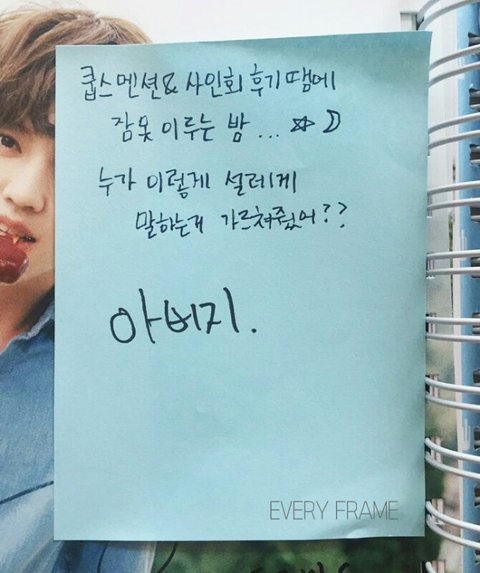 쿱스멘션&사인회 후기 땜에
잠못 이루는 밤... ☆☽
누가 이렇게 설레게
말하는거 가르쳐줬어??
아버지.
EVERY FRAME